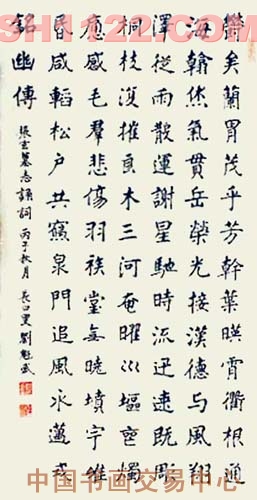 鬱矣蘭胄茂乎芳幹葉暎霄衢根通
海翰然氣貫岳榮光接漢德与風翔
澤從雨散運謝星馳時流迅速既周
桐枝復摧良木三河奄曜巛塸燭
感毛羣悲傷羽族堂無曉墳宇維
昏咸韜松户共寢泉門追風永邁
銘幽傳
張玄墓志誦詞 丙子秋月 叟劉魁武
122.COM
中国书画交易中心